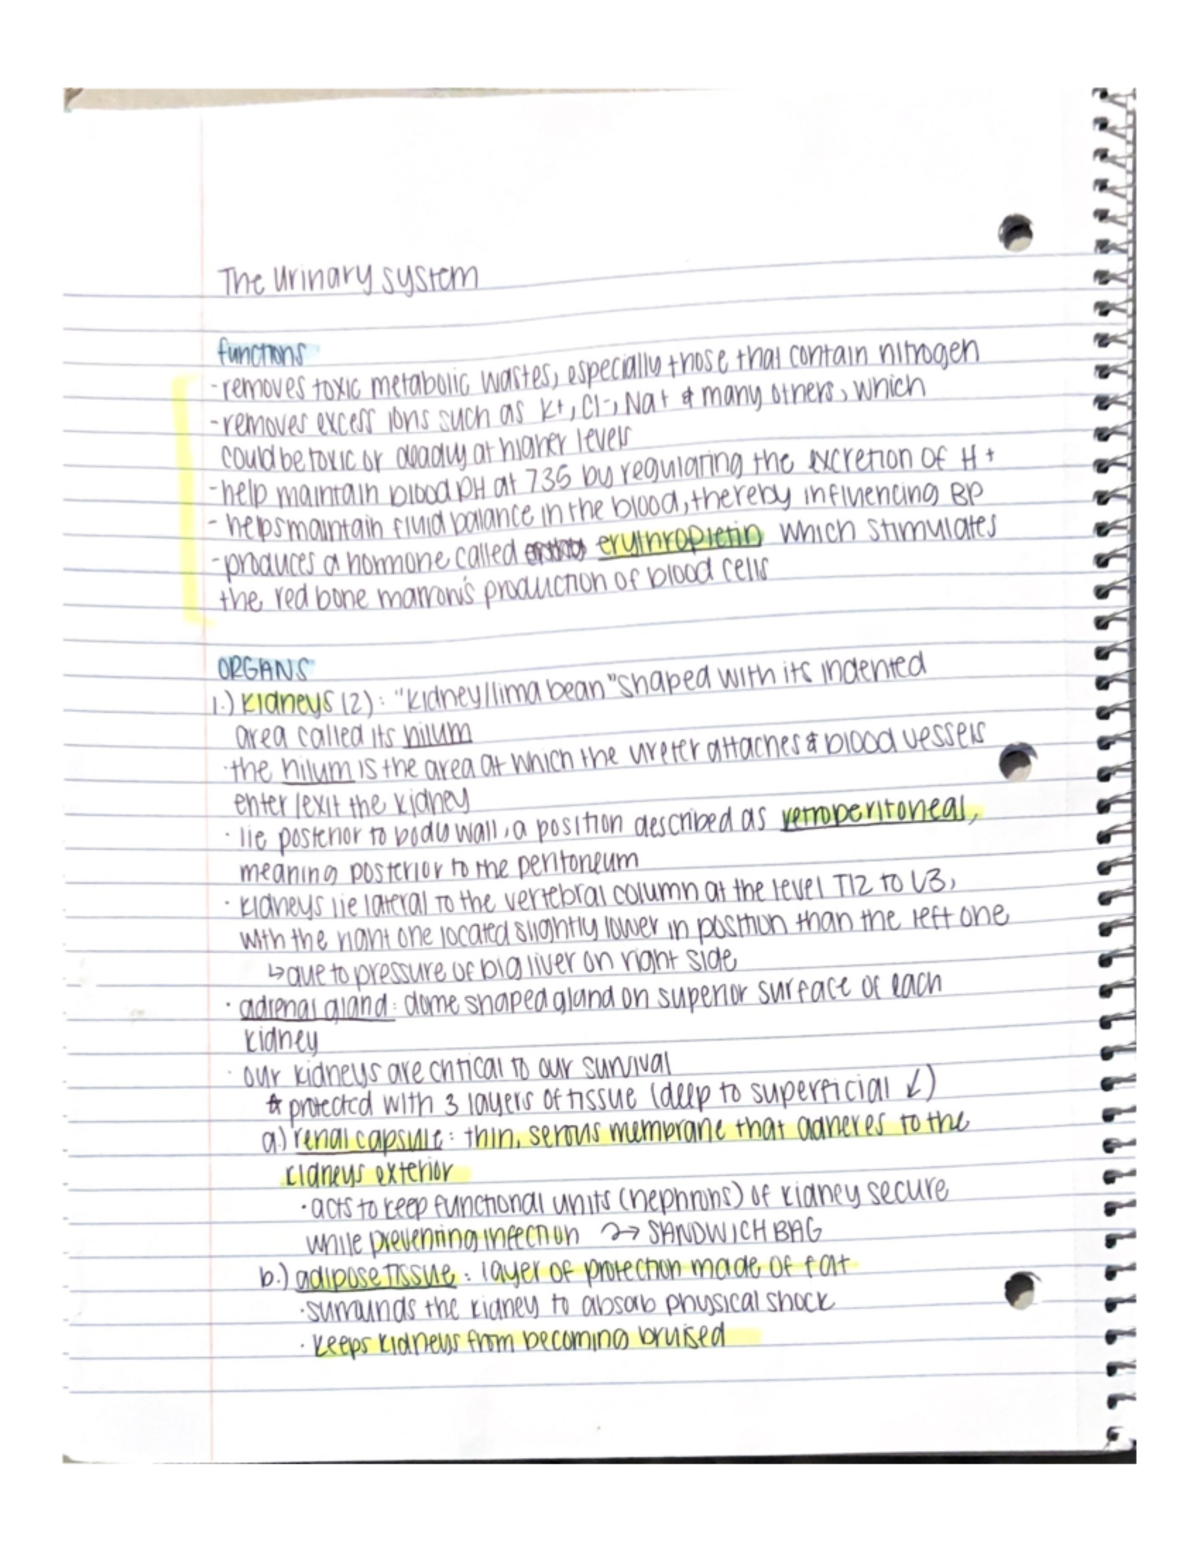 The Urinary system
functions
-removes toxic metabolic wastes, especially those that contain nitrogen
-removes excess ions such as K+, Cl-, Na+ & many others, which
could be toxic or deadly at higher levels
-help maintain blood pH at 7.35 by regulating the excretion of H+
- helps maintain fluid balance in the blood, thereby influencing BP
-produces a hormone called erythropietin which stimulates
the red bone marrow's production of blood cells
ORGANS
1.) kidneys (2): "kidney/lima bean" shaped with its indented
area called its hilum
·the hilum is the area at which the ureter attaches & blood vessels
enter/exit the kidney
· lie posterior to body wall, a position described as retroperitoneal,
meaning posterior to the peritoneum
· kidneys lie lateral to the vertebral column at the level T12 to L3,
with the right one located slightly lower in position than the left one
↳due to pressure of big liver on right side
· adrenal gland: dome shaped gland on superior surface of each
kidney
· our kidneys are critical to our survival
* protected with 3 layers of tissue (deep to superficial ↓)
a.) renal capsule: thin, serous membrane that adheres to the
kidneys exterior
·acts to keep functional units (nephrons) of kidney secure
while preventing infection → SANDWICH BAG
b.) adipose tissue: layer of protection made of fat
·surrounds the kidney to absorb physical shock
· keeps kidneys from becoming bruised